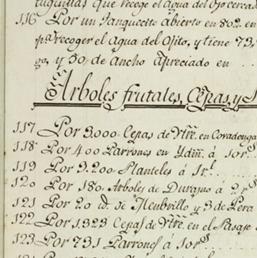 tuguitas que recoge el Agua del Ojo cercad
116 Por un Tanquecito abierto en 802. en
pa recoger el Agua del Ojito, y tiene 73,
go, y 30, de Ancho Apreciado en
Arboles frutales, Cepas, y
117 Por 3,000 Cepas de en
118 Por 400 Parrones en á 10 r.s
119 Por 3.200 Planteles á 1 r.l
120 Por 180 Arboles de Durazno á 2 r.s
121 Por 20 id. de Menbrillo y 3 de Pera
122 Por 1.323 Cepas de en el
123 Por 731 Parrones á 10 r.s